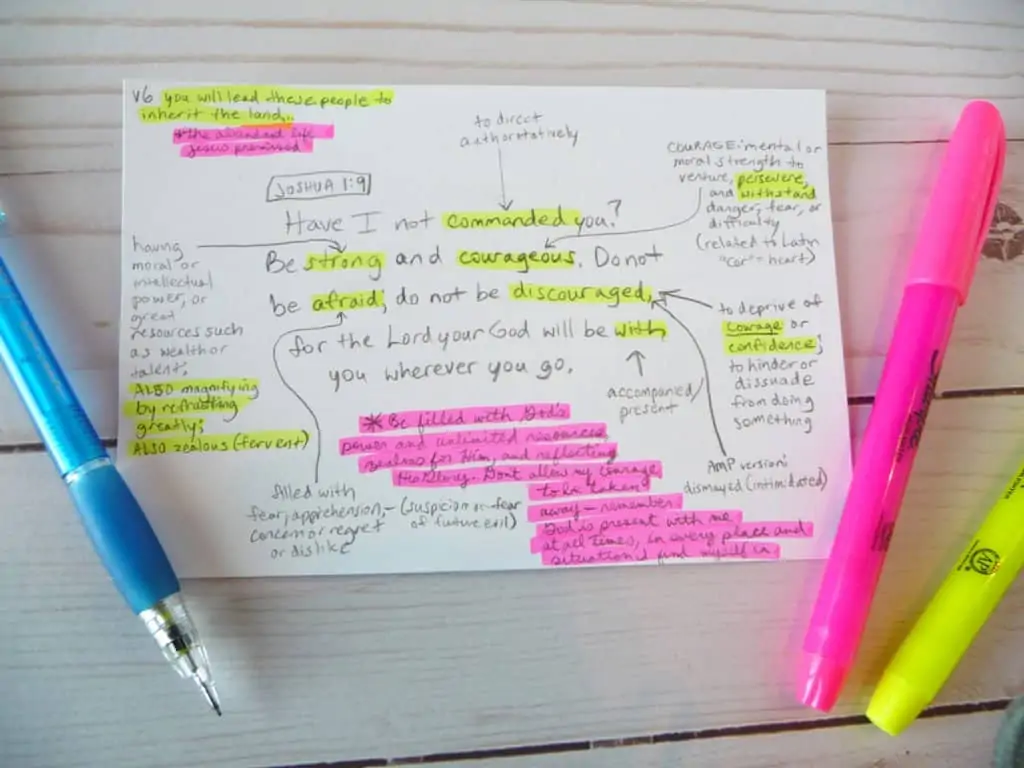 v6 you will lead these people to
inherit the land...
*the abundant life
Jesus promised
to direct
authoritatively
COURAGE: mental or
moral strength to
venture, persevere,
and withstand
danger, fear, or
difficulty
(related to Latin
"cor" = heart)
JOSHUA 1:9
Have I not commanded you?
Be strong and courageous. Do not
be afraid; do not be discouraged,
for the Lord your God will be with
you wherever you go.
having
moral or
intellectual
power, or
great
resources such
as wealth or
talent;
ALSO magnifying
by refracting
greatly;
ALSO zealous (fervent)
to deprive of
courage or
confidence;
to hinder or
dissuade
from doing
something
accompanied/
present
AMP version:
dismayed (intimidated)
filled with
fear, apprehension, – (suspicion or fear
concern or regret of future evil)
or dislike
* Be filled with God's
power and unlimited resources,
zealous for Him, and reflecting
His Glory. Don't allow my courage
to be taken
away – remember
God is present with me
at all times, in every place and
situation I find myself in
Sharpie